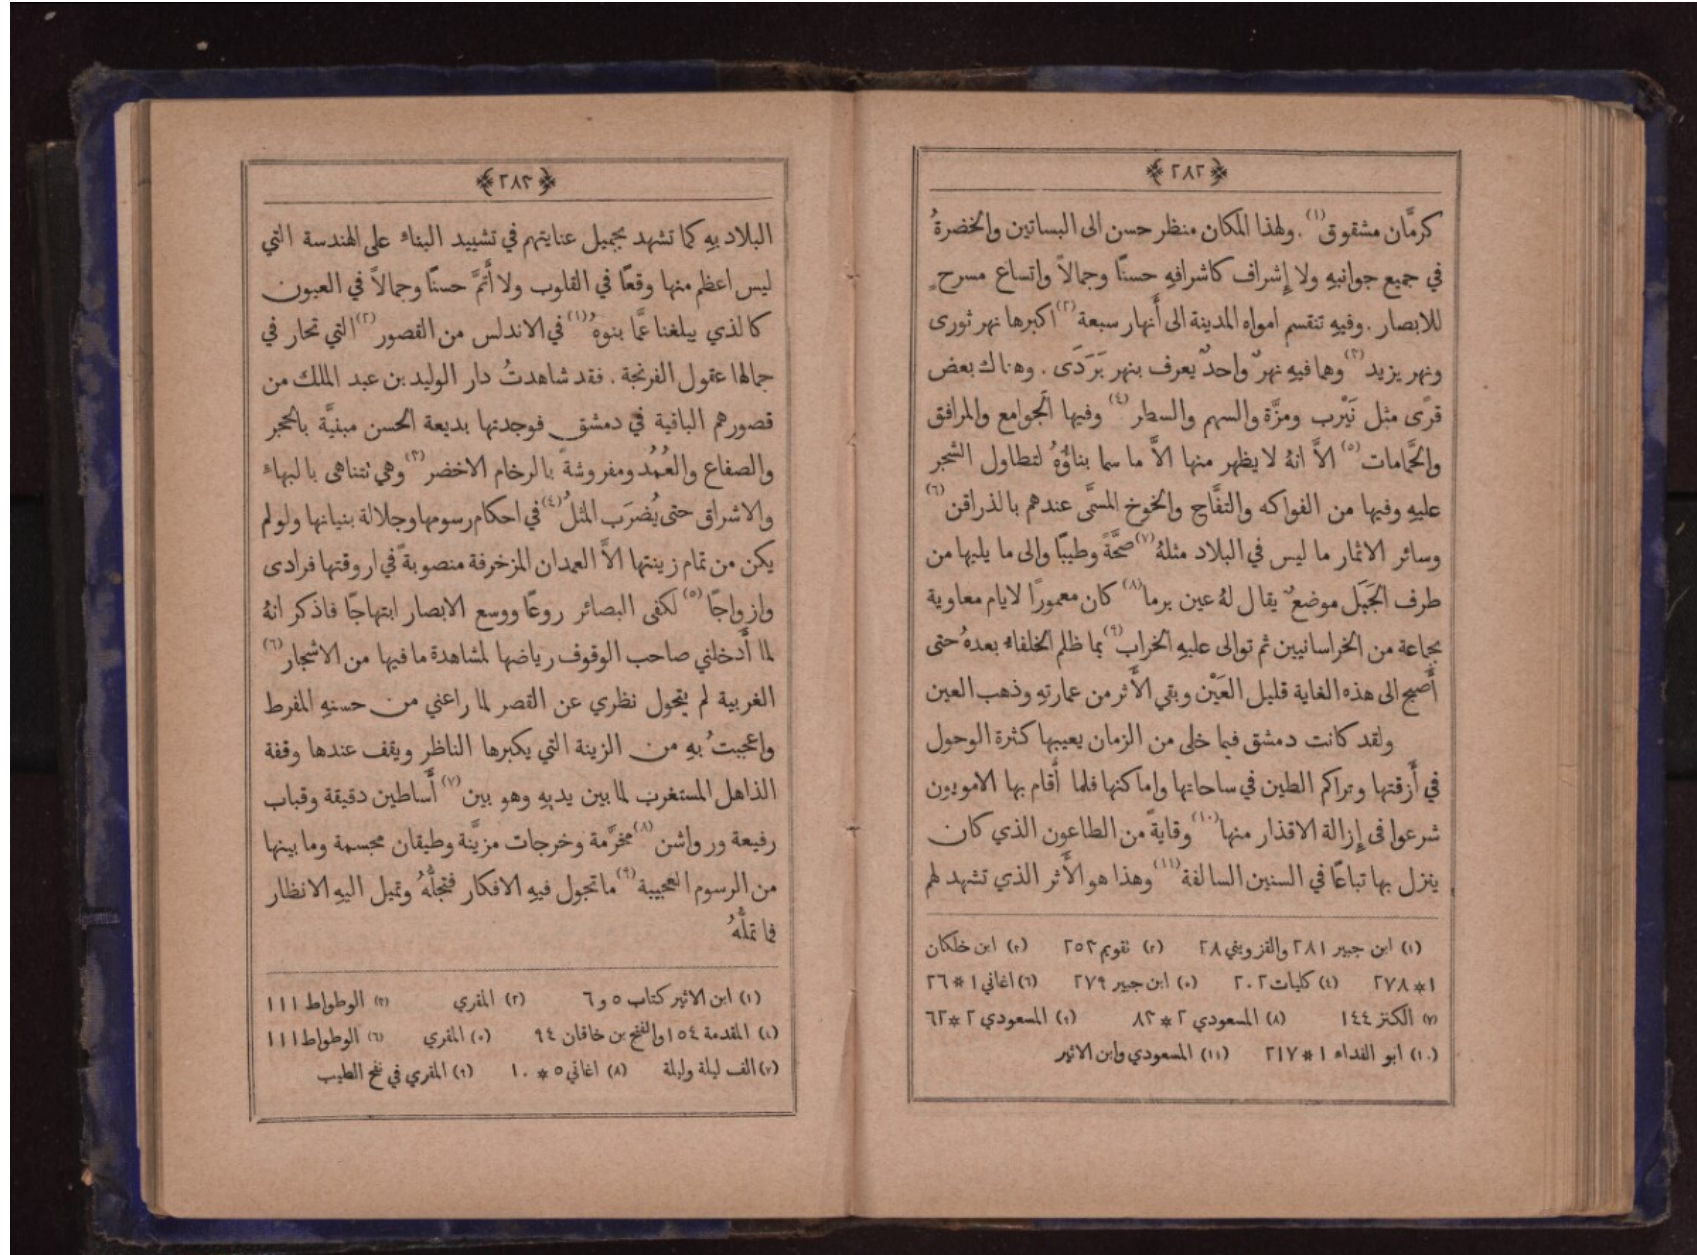 ﴿٢٨٢﴾
كرمَّان مشقوق(١). ولهذا المكان منظر حسن الى البساتين والخضرةُ
في جميع جوانبهِ ولا إِشراف كاشرافهِ حسنًا وجمالاً واتساع مسرح
للابصار. وفيهِ تنقسم امواه المدينة الى أَنهار سبعة(٢) اكبرها نهر ثورى
ونهر يزيد(٣) وهما فيهِ نهرٌ واحدٌ يعرف بنهر بَرَدَى. وهناك بعض
قرًى مثل نَيْرب ومزَّة والسهم والسطر(٤) وفيها الجوامع والمرافق
والحَّمامات(٥) الاَّ انهُ لا يظهر منها الاَّ ما سما بناؤُهُ لتطاول الشجر
عليهِ وفيها من الفواكه والتفَّاح والخوخ المسَّى عندهم بالذراقن(٦)
وسائر الاثمار ما ليس في البلاد مثلهُ(٧) صحَّةً وطيبًا والى ما يليها من
طرف الجَبَل موضعٌ يقال لهُ عين برما(٨) كان معمورًا لايام معاوية
بجماعة من الخراسانيين ثم توالى عليهِ الخراب(٩) بما ظلم الخلفاء بعدهُ حتى
أَصبح الى هذه الغاية قليل العَيْن وبقي الأَثر من عمارتهِ وذهب العين
ولقد كانت دمشق فيما خلى من الزمان يعيبها كثرة الوحول
في أَزقتها وتراكم الطين في ساحاتها واماكنها فلما أَقام بها الامويون
شرعوا في إِزالة الاقذار منها(١٠) وقايةً من الطاعون الذي كان
ينزل بها تباعًا في السنين السالفة(١١) وهذا هو الأَثر الذي تشهد لهم
(١) ابن جبير ٢٨١ والقزويني ٢٨ (٢) تقويم ٢٥٣ (٣) ابن خلكان
١*٢٧٨ (٤) كليات ٢٠٢ (٥) ابن جبير ٢٧٩ (٦) اغاني ١*٢٦
(٧) الكنز ١٤٤ (٨) المسعودي ٢*٨٣ (٩) المسعودي ٢*٦٣
(١٠) ابو الفداء ١*٢١٧ (١١) المسعودي وابن الاثير
﴿٢٨٣﴾
البلاد بهِ كما تشهد بجميل عنايتهم في تشييد البناء على الهندسة التي
ليس اعظم منها وقعًا في القلوب ولا أَتمَّ حسنًا وجمالاً في العيون
كالذي يبلغنا عمَّا بنوهُ(١) في الاندلس من القصور(٢) التي تحار في
جمالها عقول الفرنجة. فقد شاهدتُ دار الوليد بن عبد الملك من
قصورهم الباقية في دمشق فوجدتها بديعة الحسن مبنيَّة بالحجر
والصفاع والعُمُد ومفروشةً بالرخام الاخضر(٣) وهي تتناهى بالبهاء
والاشراق حتى يُضرَب المثلُ(٤) في احكام رسومها وجلالة بنيانها ولو لم
يكن من تمام زينتها الاَّ العمدان المزخرفة منصوبةً في اروقتها فرادى
وازواجًا(٥) لكفى البصائر روعًا ووسع الابصار ابتهاجًا فاذكر انهُ
لما أَدخلني صاحب الوقوف رياضها لمشاهدة ما فيها من الاشجار(٦)
الغريبة لم يتحول نظري عن القصر لما راعني من حسنهِ المفرط
واعجبتُ بهِ من الزينة التي يكبرها الناظر ويقف عندها وقفة
الذاهل المستغرب لما بين يديهِ وهو بين(٧) أَساطين دقيقة وقباب
رفيعة ورواشن(٨) مخرَّمة وخرجات مزيَّنة وطيقان مجسمة وما بينها
من الرسوم العجيبة(٩) ما تجول فيهِ الافكار فتجلُّهُ وتميل اليهِ الانظار
فما تملُّهُ
(١) ابن الاثير كتاب ٥ و٦ (٢) المقري (٣) الوطواط ١١١
(٤) المقدمة ١٥٤ والفتح بن خاقان ٩٤ (٥) المقري (٦) الوطواط ١١١
(٧) الف ليلة وليلة (٨) اغاني ٥*١٠ (٩) المقري في نفح الطيب